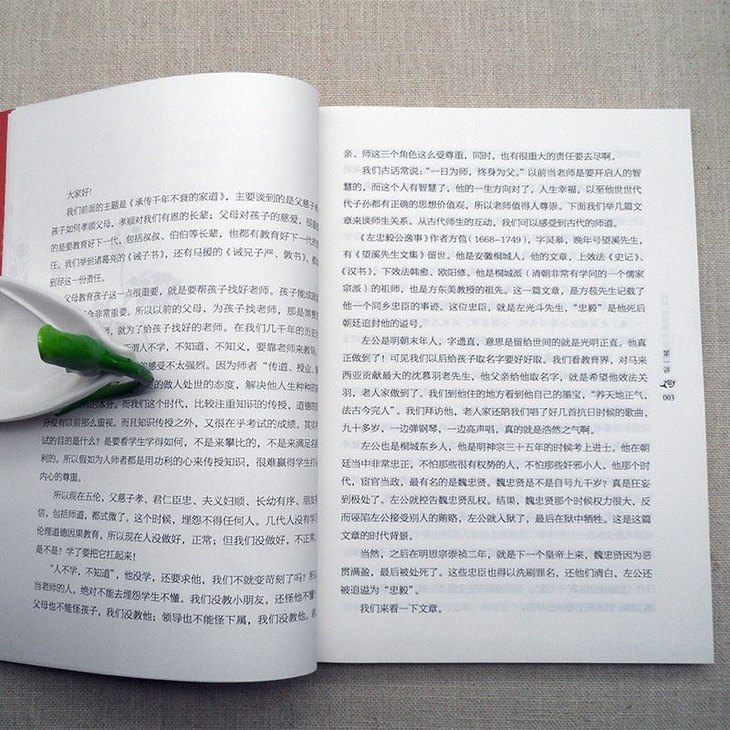 大家好！
我们前面的主题是《承传千年不衰的家道》，主要谈到的是父慈子
孩子如何孝顺父母，孝顺对我们有恩的长辈；父母对孩子的慈爱，很
的是要教育好下一代，包括叔叔、伯伯等长辈，也都有教育好下一代的
任。我们举到诸葛亮的《诫子书》，还有马援的《诫兄子严、敦书》，都
到尽这一份责任。
父母教育孩子这一点很重要，就是要帮孩子找好老师。孩子能成就
会非常重要。所以以前的父母，为孩子找老师，那是煞费
，就为了给孩子找好的老师。在我们几千年的历史
谓人不学，不知道，不知义，要靠老师来教导
的感受不太强烈。因为师者“传道、授业、解
的做人处世的态度，解决他人生种种的
的本分。而我们这个时代，比较注重知识的传授，道德的
分没有以前那么重视。而且知识传授之外，又很在乎考试的成绩，其实
试的目的是什么？是要看学生学得如何，不是来攀比的，不是来满足
利的。所以假如为人师者都是用功利的心来传授知识，很难赢得学生打
内心的尊重。
所以现在五伦，父慈子孝、君仁臣忠、夫义妇顺、长幼有序、朋友
信，包括师道，都式微了，这个时候，埋怨不得任何人。几代人没有学
伦理道德因果教育，所以现在人没做好，正常；但我们没做好，不正常
是不是？学了要把它扛起来！
“人不学，不知道”，他没学，还要求他，我们不就变苛刻了吗？所
当老师的人，绝对不能去埋怨学生不懂。我们没教小朋友，还怪他不懂
父母也不能怪孩子，我们没教他；领导也不能怪下属，我们没教他。
亲、师这三个角色这么受尊重，同时，也有很重大的责任要去尽啊。
我们古话常说：“一日为师，终身为父。”以前当老师是要开启人的智
慧的，而这个人有智慧了，他的一生方向对了，人生幸福，以至他世世代
代子孙都有正确的思想价值观。所以老师值得人尊崇。下面我们举几篇文
章来谈师生关系。从古代师生的互动，我们可以感受到古代的师道。
《左忠毅公逸事》作者方苞（1668-1749），字灵皋，晚年号望溪先生，
有《望溪先生文集》留世。他是安徽桐城人。他的文章，上效法《史记》、
《汉书》，下效法韩愈、欧阳修。他是桐城派（清朝非常有学问的一个儒家
宗派）的祖师，也是方东美教授的祖先。这一篇文章，是方苞先生记载了
他一个同乡忠臣的事迹。这位忠臣，就是左光斗先生，“忠毅”是他死后
朝廷追封他的谥号。
左公是明朝末年人，字遗直，意思是留给世间的就是光明正直。他真
正做到了！可见我们以后给孩子取名字要好好取。我们看教育界，对马来
西亚贡献最大的沈慕羽老先生，他父亲给他取名字，就是希望他效法关
羽，老人家做到了。我们到他住的地方看到他自己的墨宝，“养天地正气，
法古今完人”。我们拜访他，老人家还陪我们唱了好几首抗日时候的歌曲，
九十多岁，一边弹钢琴，一边高声唱，真的就是浩然之气啊。
左公也是桐城东乡人，他是明神宗三十五年的时候考上进士。他在朝
廷当中非常忠正，不怕那些很有权势的人，不怕那些奸邪小人。他那个时
代，宦官当政，最有名的是魏忠贤。魏忠贤是不是自号九千岁？真是狂妄
到极处了。左公就控告魏忠贤乱权。结果，魏忠贤那个时候权力很大，反
而诬陷左公接受别人的贿赂，左公就入狱了，最后在狱中牺牲。这是这篇
文章的时代背景。
当然，之后在明思宗崇祯二年，就是下一个皇帝上来，魏忠贤因为恶
贯满盈，最后被处死了。这些忠臣也得以洗刷罪名，还他们清白，左公还
被追谥为“忠毅”。
我们来看一下文章。
第一讲
003